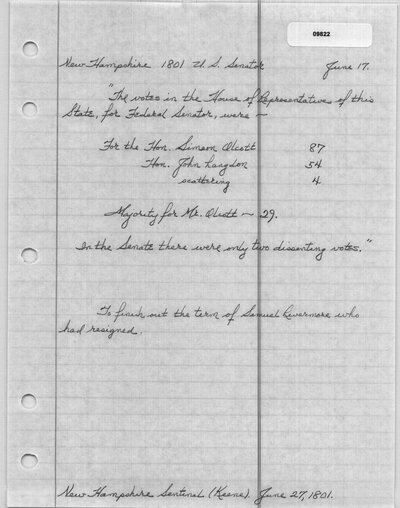 09822
New Hampshire 1801 U.S. Senator June 17.
"The votes in the House of Representatives of this
State, for Federal Senator, were ~
For the Hon. Simeon Olcott 87
Hon. John Langdon 54
scattering 4
Majority for Mr. Olcott ~ 29.
In the Senate there were only two dissenting votes."
To finish out the term of Samuel Livermore who
had resigned.
New Hampshire Sentinel (Keene). June 27, 1801.